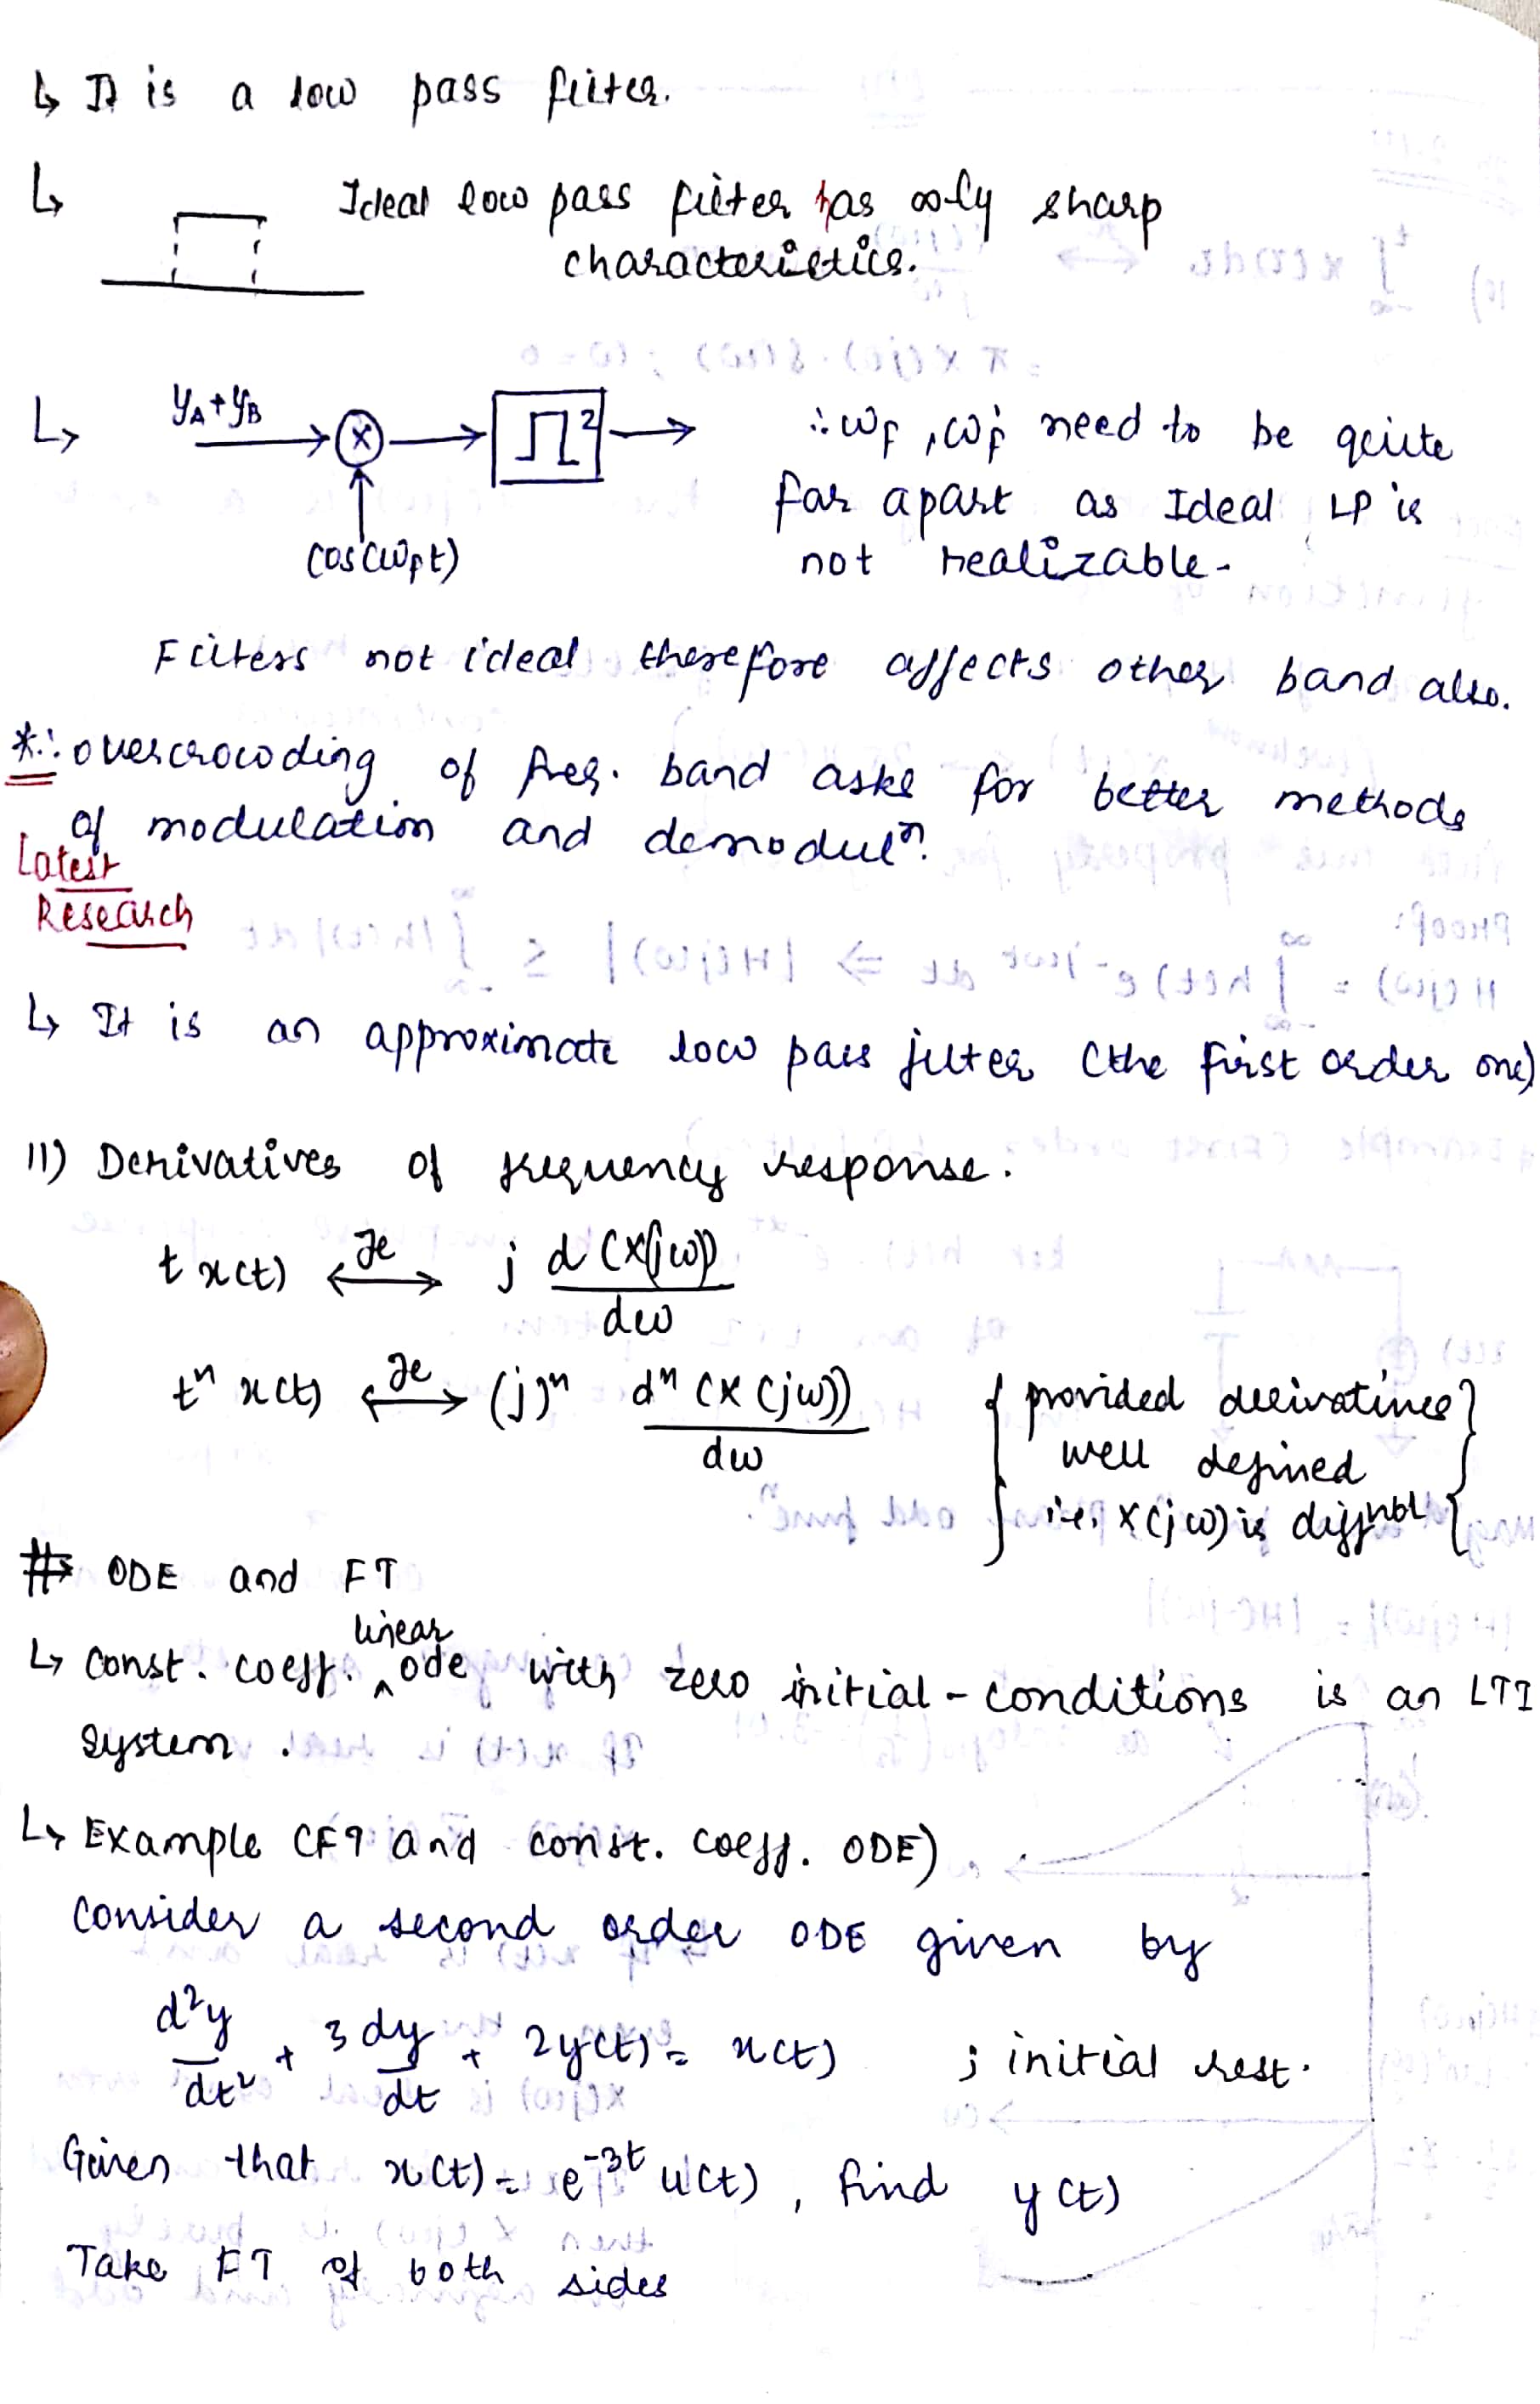 ↳ It is a low pass filter.
↳ Ideal low pass filter has only sharp
characteristics.
↳ y_A + y_B → ⊗ → [⊓ 2] → ∴ ω_f , ω_f' need to be quite
far apart as Ideal LP is
cos(ω_f t) not realizable.
Filters not ideal therefore affects other band also.
*∴ overcrowding of freq. band asks for better methods
of modulation and demodulⁿ.
Latest
Research
↳ It is an approximate low pass filter (the first order one)
11) Derivatives of frequency response.
t x(t) ⟷ j d(X(jω))/dω
tⁿ x(t) ⟷ (j)ⁿ dⁿ(X(jω))/dω { provided derivatives
well defined
i.e. X(jω) is diffnbl }
# ODE and FT
↳ Const. coeff. ^linear ode with zero initial-conditions is an LTI
system.
↳ Example (FT and const. coeff. ODE)
Consider a second order ODE given by
d²y/dt² + 3 dy/dt + 2y(t) = x(t) ; initial rest.
Given that x(t) = e^{-3t} u(t), find y(t)
Take FT of both sides